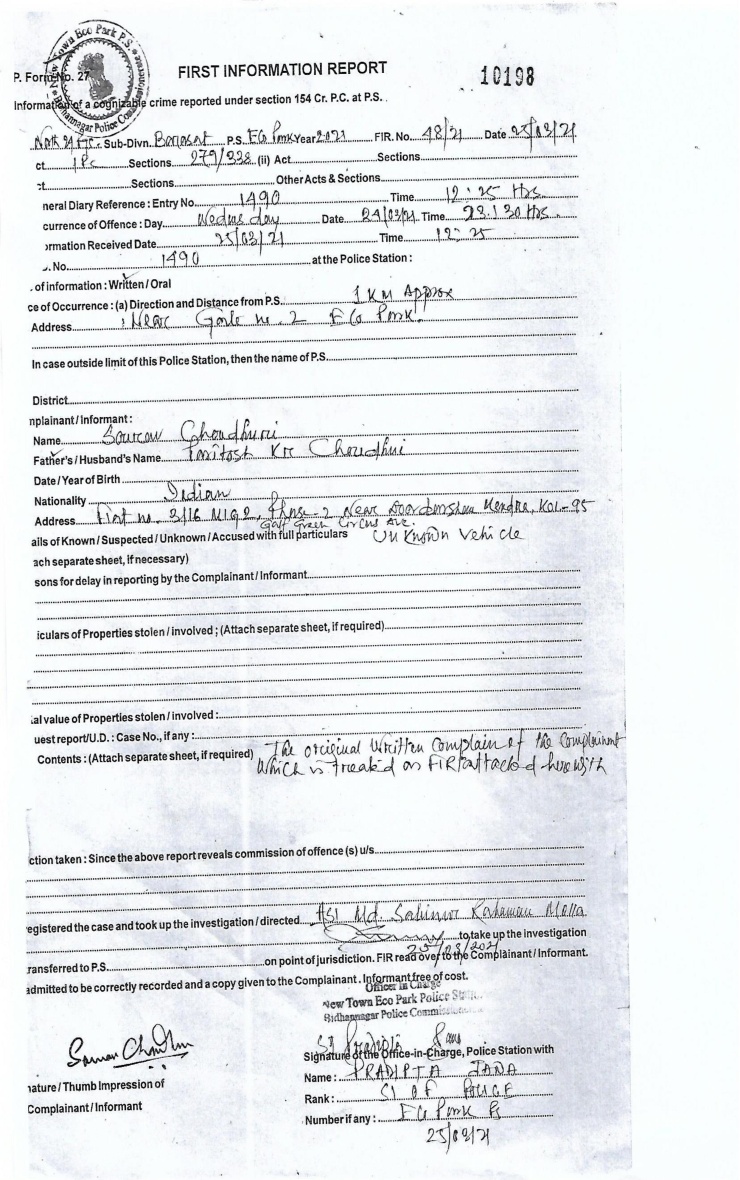 New Town Eco Park P.S.
Bidhannagar Police Commissionerate
P. Form No. 27
FIRST INFORMATION REPORT
10198
Information of a cognizable crime reported under section 154 Cr. P.C. at P.S.
Sub-Divn. Barasat P.S. ECo Park Year 2021 FIR. No. 48/21 Date 25/03/21
ct IPc Sections 279/338 (ii) Act Sections
ct Sections Other Acts & Sections
neral Diary Reference : Entry No. 1490 Time 12:25 Hrs
currence of Offence : Day Wednesday Date 24/03/21 Time 23:30 Hrs.
ormation Received Date 25/03/21 Time 12:25
No. 1490 at the Police Station :
. of information : Written / Oral
ce of Occurrence : (a) Direction and Distance from P.S. 1 KM Approx
Address : Near Gate no. 2 ECo Park.
In case outside limit of this Police Station, then the name of P.S.
District
nplainant / Informant :
Name Sourav Choudhuri
Father's / Husband's Name Paritosh Kr Choudhuri
Date / Year of Birth
Nationality Indian
Address Flat no. 3/16 MIG 2, Phase-2 Near Doordarshan Kendra, KOL-95
Golf Green Circus Ave.
ails of Known / Suspected / Unknown / Accused with full particulars Unknown vehicle
ach separate sheet, if necessary)
sons for delay in reporting by the Complainant / Informant
iculars of Properties stolen / involved ; (Attach separate sheet, if required)
al value of Properties stolen / involved :
uest report/U.D. : Case No., if any :
Contents : (Attach separate sheet, if required) The original written complain of the complainant
which is treated as FIR attached herewith
ction taken : Since the above report reveals commission of offence (s) u/s
egistered the case and took up the investigation / directed ASI Md. Sahinur Rahaman Molla
to take up the investigation
25/03/2021
ransferred to P.S. on point of jurisdiction. FIR read over to the Complainant / Informant.
admitted to be correctly recorded and a copy given to the Complainant. Informant free of cost.
Officer in Charge
New Town Eco Park Police Station
Bidhannagar Police Commissionerate
Signature of the Office-in-Charge, Police Station with
Name : PRADIPTA JANA
nature / Thumb Impression of
Rank : SI OF POLICE
Complainant / Informant
Number if any : ECo Park PS
25/03/21